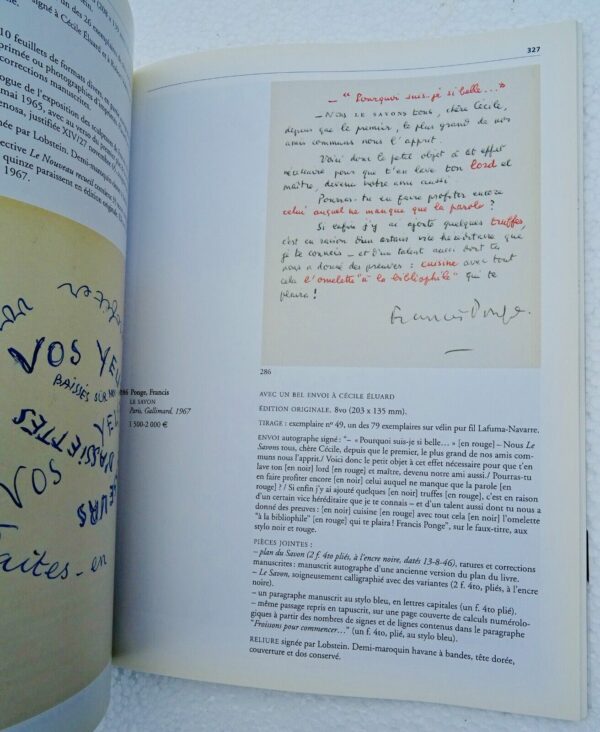 un des 26 exemplaires
signé à Cécile Éluard et à
10 feuillets de formats divers, en
primée ou photographies d'
corrections manuscrites.
logue de l'exposition des sculptures de
mai 1965, avec au verso du
enosa, justifiée XIV/27 novembre
née par Lobstein. Demi-maroquin
ective Le Nouveau recueil contient
quinze paraissent en édition originale.
1967.
VOS YEU
BAISSÉS SUR
ASSIETTES
VOS
LEURS
Faites-en
327
— "Pourquoi suis-je si belle..."
— NOUS LE SAVONS tous, chère Cécile,
depuis que le premier, le plus grand de nos
amis communs nous l'apprit.
Voici donc le petit objet à cet effet
nécessaire pour que t'en lave ton lord et
maître, devenu notre ami aussi.
Pourras-tu en faire profiter encore
celui auquel ne manque que la parole ?
Si enfin j'y ai ajouté quelques truffes,
c'est en raison d'un certain vice héréditaire que
je te connais — et d'un talent aussi dont tu
nous a donné des preuves : cuisine avec tout
cela l'omelette "à la bibliophile" qui te
plaira !
Francis Ponge.
286
286 Ponge, Francis
LE SAVON
Paris, Gallimard, 1967
1 500-2 000 €
AVEC UN BEL ENVOI À CÉCILE ÉLUARD
ÉDITION ORIGINALE. 8vo (203 x 135 mm).
TIRAGE : exemplaire n° 49, un des 79 exemplaires sur vélin pur fil Lafuma-Navarre.
ENVOI autographe signé : "– « Pourquoi suis-je si belle… » [en rouge] – Nous Le
Savons tous, chère Cécile, depuis que le premier, le plus grand de nos amis com-
muns nous l'apprit./ Voici donc le petit objet à cet effet nécessaire pour que t'en
lave ton [en noir] lord [en rouge] et maître, devenu notre ami aussi./ Pourras-tu
en faire profiter encore [en noir] celui auquel ne manque que la parole [en
rouge] ? / Si enfin j'y ai ajouté quelques [en noir] truffes [en rouge], c'est en raison
d'un certain vice héréditaire que je te connais – et d'un talent aussi dont tu nous a
donné des preuves : [en noir] cuisine [en rouge] avec tout cela [en noir] l'omelette
"à la bibliophile" [en rouge] qui te plaira ! Francis Ponge", sur le faux-titre, aux
stylo noir et rouge.
PIÈCES JOINTES :
– plan du Savon (2 f. 4to pliés, à l'encre noire, datés 13-8-46), ratures et corrections
manuscrites : manuscrit autographe d'une ancienne version du plan du livre.
– Le Savon, soigneusement calligraphié avec des variantes (2 f. 4to, pliés, à l'encre
noire).
– un paragraphe manuscrit au stylo bleu, en lettres capitales (un f. 4to plié).
– même passage repris en tapuscrit, sur une page couverte de calculs numérolo-
giques à partir des nombres de signes et de lignes contenus dans le paragraphe
"Froissons pour commencer…" (un f. 4to, plié, au stylo bleu).
RELIURE signée par Lobstein. Demi-maroquin havane à bandes, tête dorée,
couverture et dos conservé.